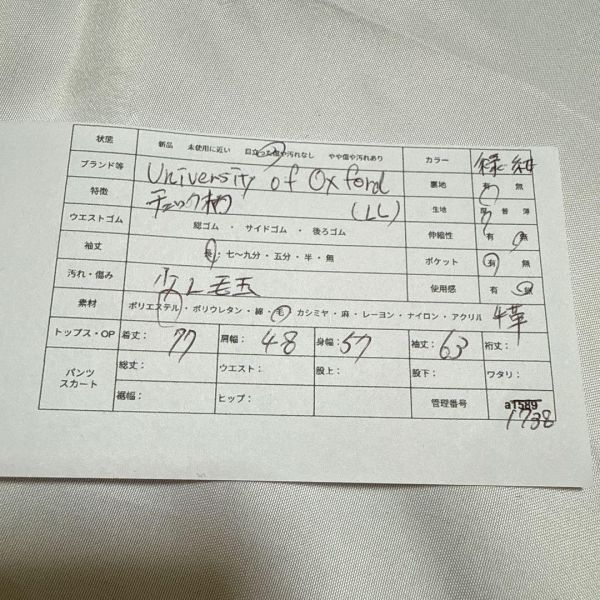 状態 新品 未使用に近い 目立った傷や汚れなし やや傷や汚れあり カラー 緑 紺
ブランド等 University of Oxford 裏地 有 無
特徴 チェック柄 (LL) 生地 厚 普 薄
ウエストゴム 総ゴム ・ サイドゴム ・ 後ろゴム 伸縮性 有 無
袖丈 長 ・ 七〜九分 ・ 五分 ・ 半 ・ 無 ポケット 有 無
汚れ・傷み 少し毛玉 使用感 有 無
素材 ポリエステル ・ ポリウレタン ・ 綿 ・ 毛 ・ カシミヤ ・ 麻 ・ レーヨン ・ ナイロン ・ アクリル 牛革
トップス・OP 着丈: 77 肩幅: 48 身幅: 57 袖丈: 63 裄丈:
パンツ スカート 総丈: ウエスト: 股上: 股下: ワタリ:
裾幅: ヒップ: 管理番号 a1589
1738